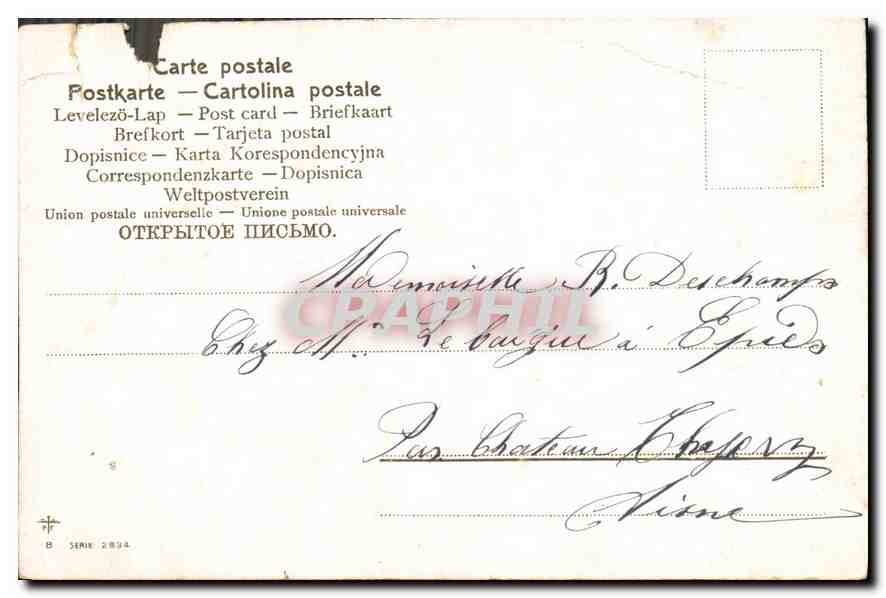 Carte postale
Postkarte — Cartolina postale
Levelezö-Lap — Post card — Briefkaart
Brefkort — Tarjeta postal
Dopisnice — Karta Korespondencyjna
Correspondenzkarte — Dopisnica
Weltpostverein
Union postale universelle — Unione postale universale
ОТКРЫТОЕ ПИСЬМО.
Mademoiselle R. Deschamps
CPAPHIL
Chez Mr. Lebaigue à Epieds
Par Chateau Thierry
Aisne
B SERIE 2834